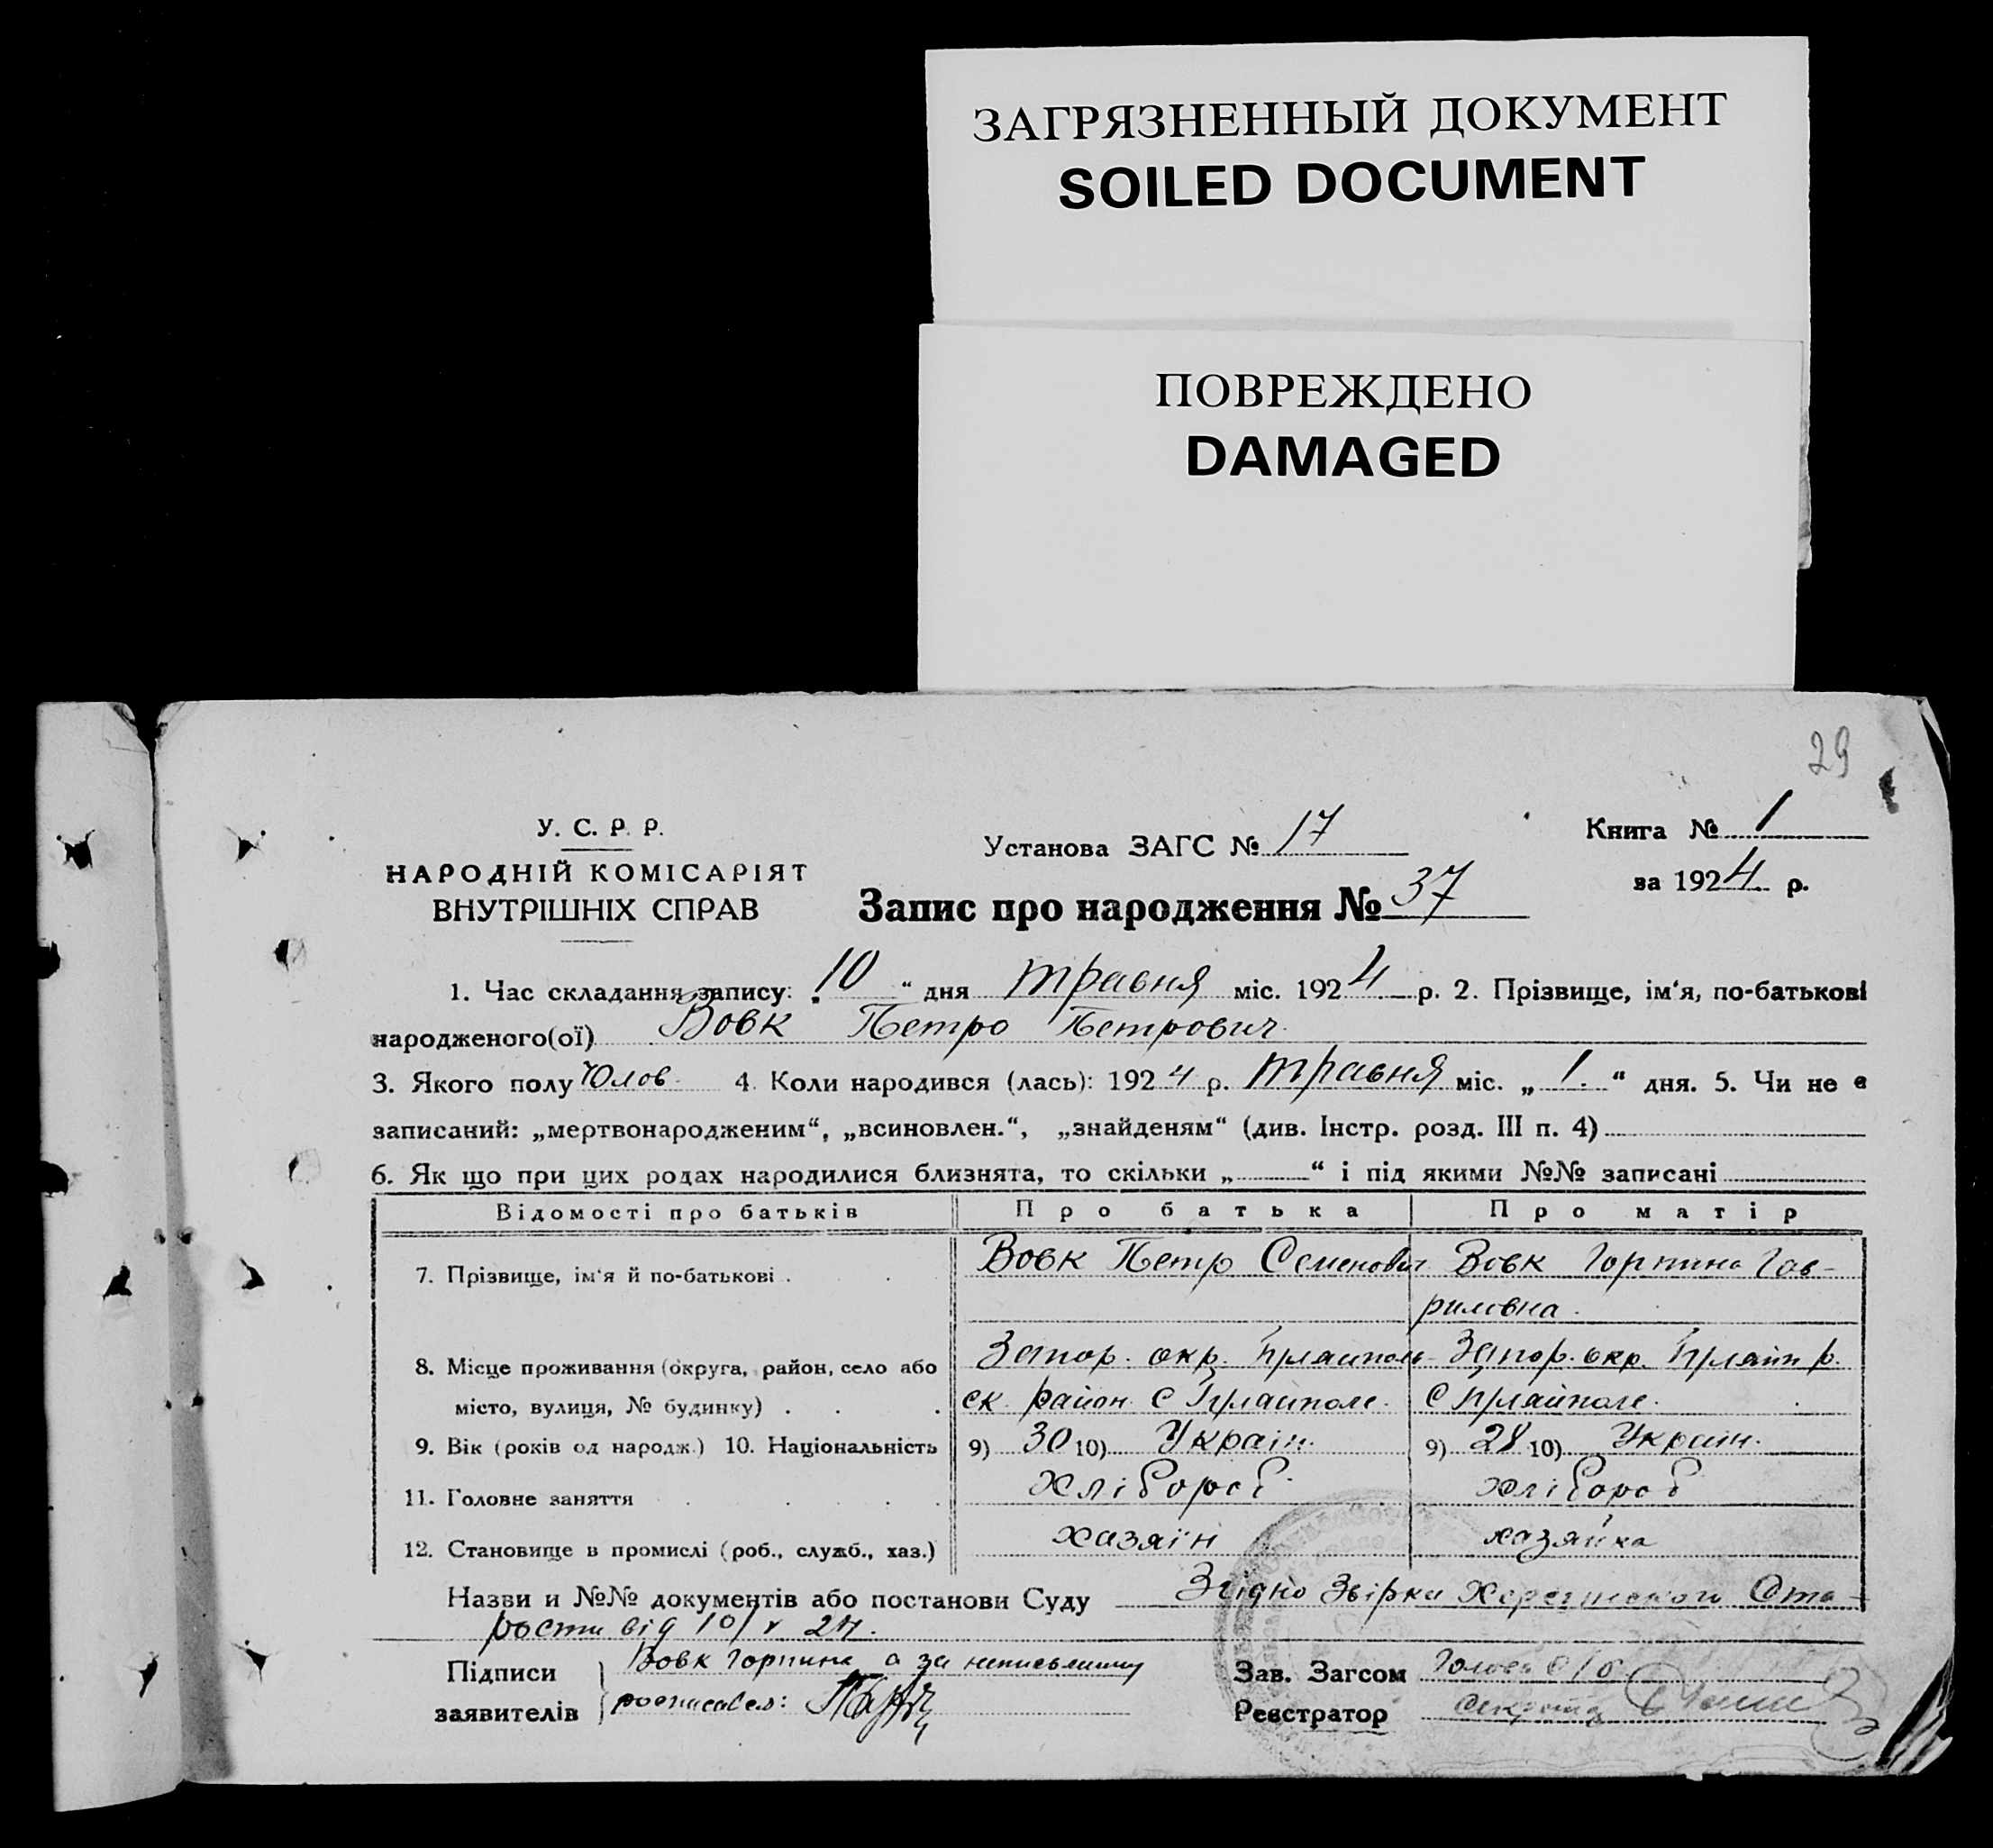 ЗАГРЯЗНЕННЫЙ ДОКУМЕНТ
SOILED DOCUMENT
ПОВРЕЖДЕНО
DAMAGED
29
У. С. Р. Р.
НАРОДНІЙ КОМІСАРІЯТ
ВНУТРІШНІХ СПРАВ
Установа ЗАГС № 17
Запис про народження № 37
Книга № 1
за 1924 р.
1. Час складання запису: „10“ дня травня міс. 1924 р. 2. Прізвище, ім‘я, по-батькові
народженого(ої) Вовк Петро Петрович
3. Якого полу 4. Коли народився (лась): 1924 р. травня міс. „1.“ дня. 5. Чи не є
записаний: „мертвонародженим“, „всиновлен.“, „знайденям“ (див. Інстр. розд. III п. 4)
6. Як що при цих родах народилися близнята, то скільки „ “ і під якими №№ записані
Відомості про батьків Про батька Про матір
7. Прізвище, ім‘я й по-батькові . Вовк Петр Семенович Вовк Горпина Гав-
риловна.
8. Місце проживання (округа, район, село або Запор. окр. Запор. окр.
місто, вулиця, № будинку) . ск. район. с с
9. Вік (років од народж.) 10. Національність 9) 30 10) Україн. 9) 28 10) Україн.
11. Головне заняття хлібороб хлібороб
12. Становище в промислі (роб., служб., хаз.) хазяїн хазяйка
Назви и №№ документів або постанови Суду Згідно Звірки Ста-
рости від 10/V 24.
Підписи Вовк Горпина а за неписьменну
заявителів росписався:
Зав. Загсом Голова
Реєстратор Секретар